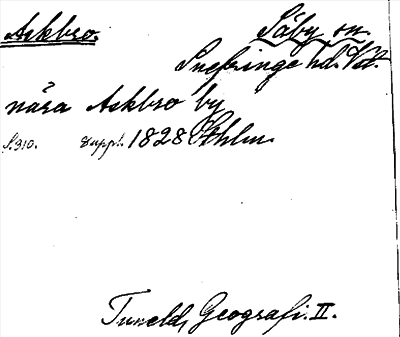 Askbro.
Säby sn.
Snefringe hd. Vstl.
nära Askbro by
S. 310. Suppl. 1828 Sthlm
Tuneld, Geografi. II.